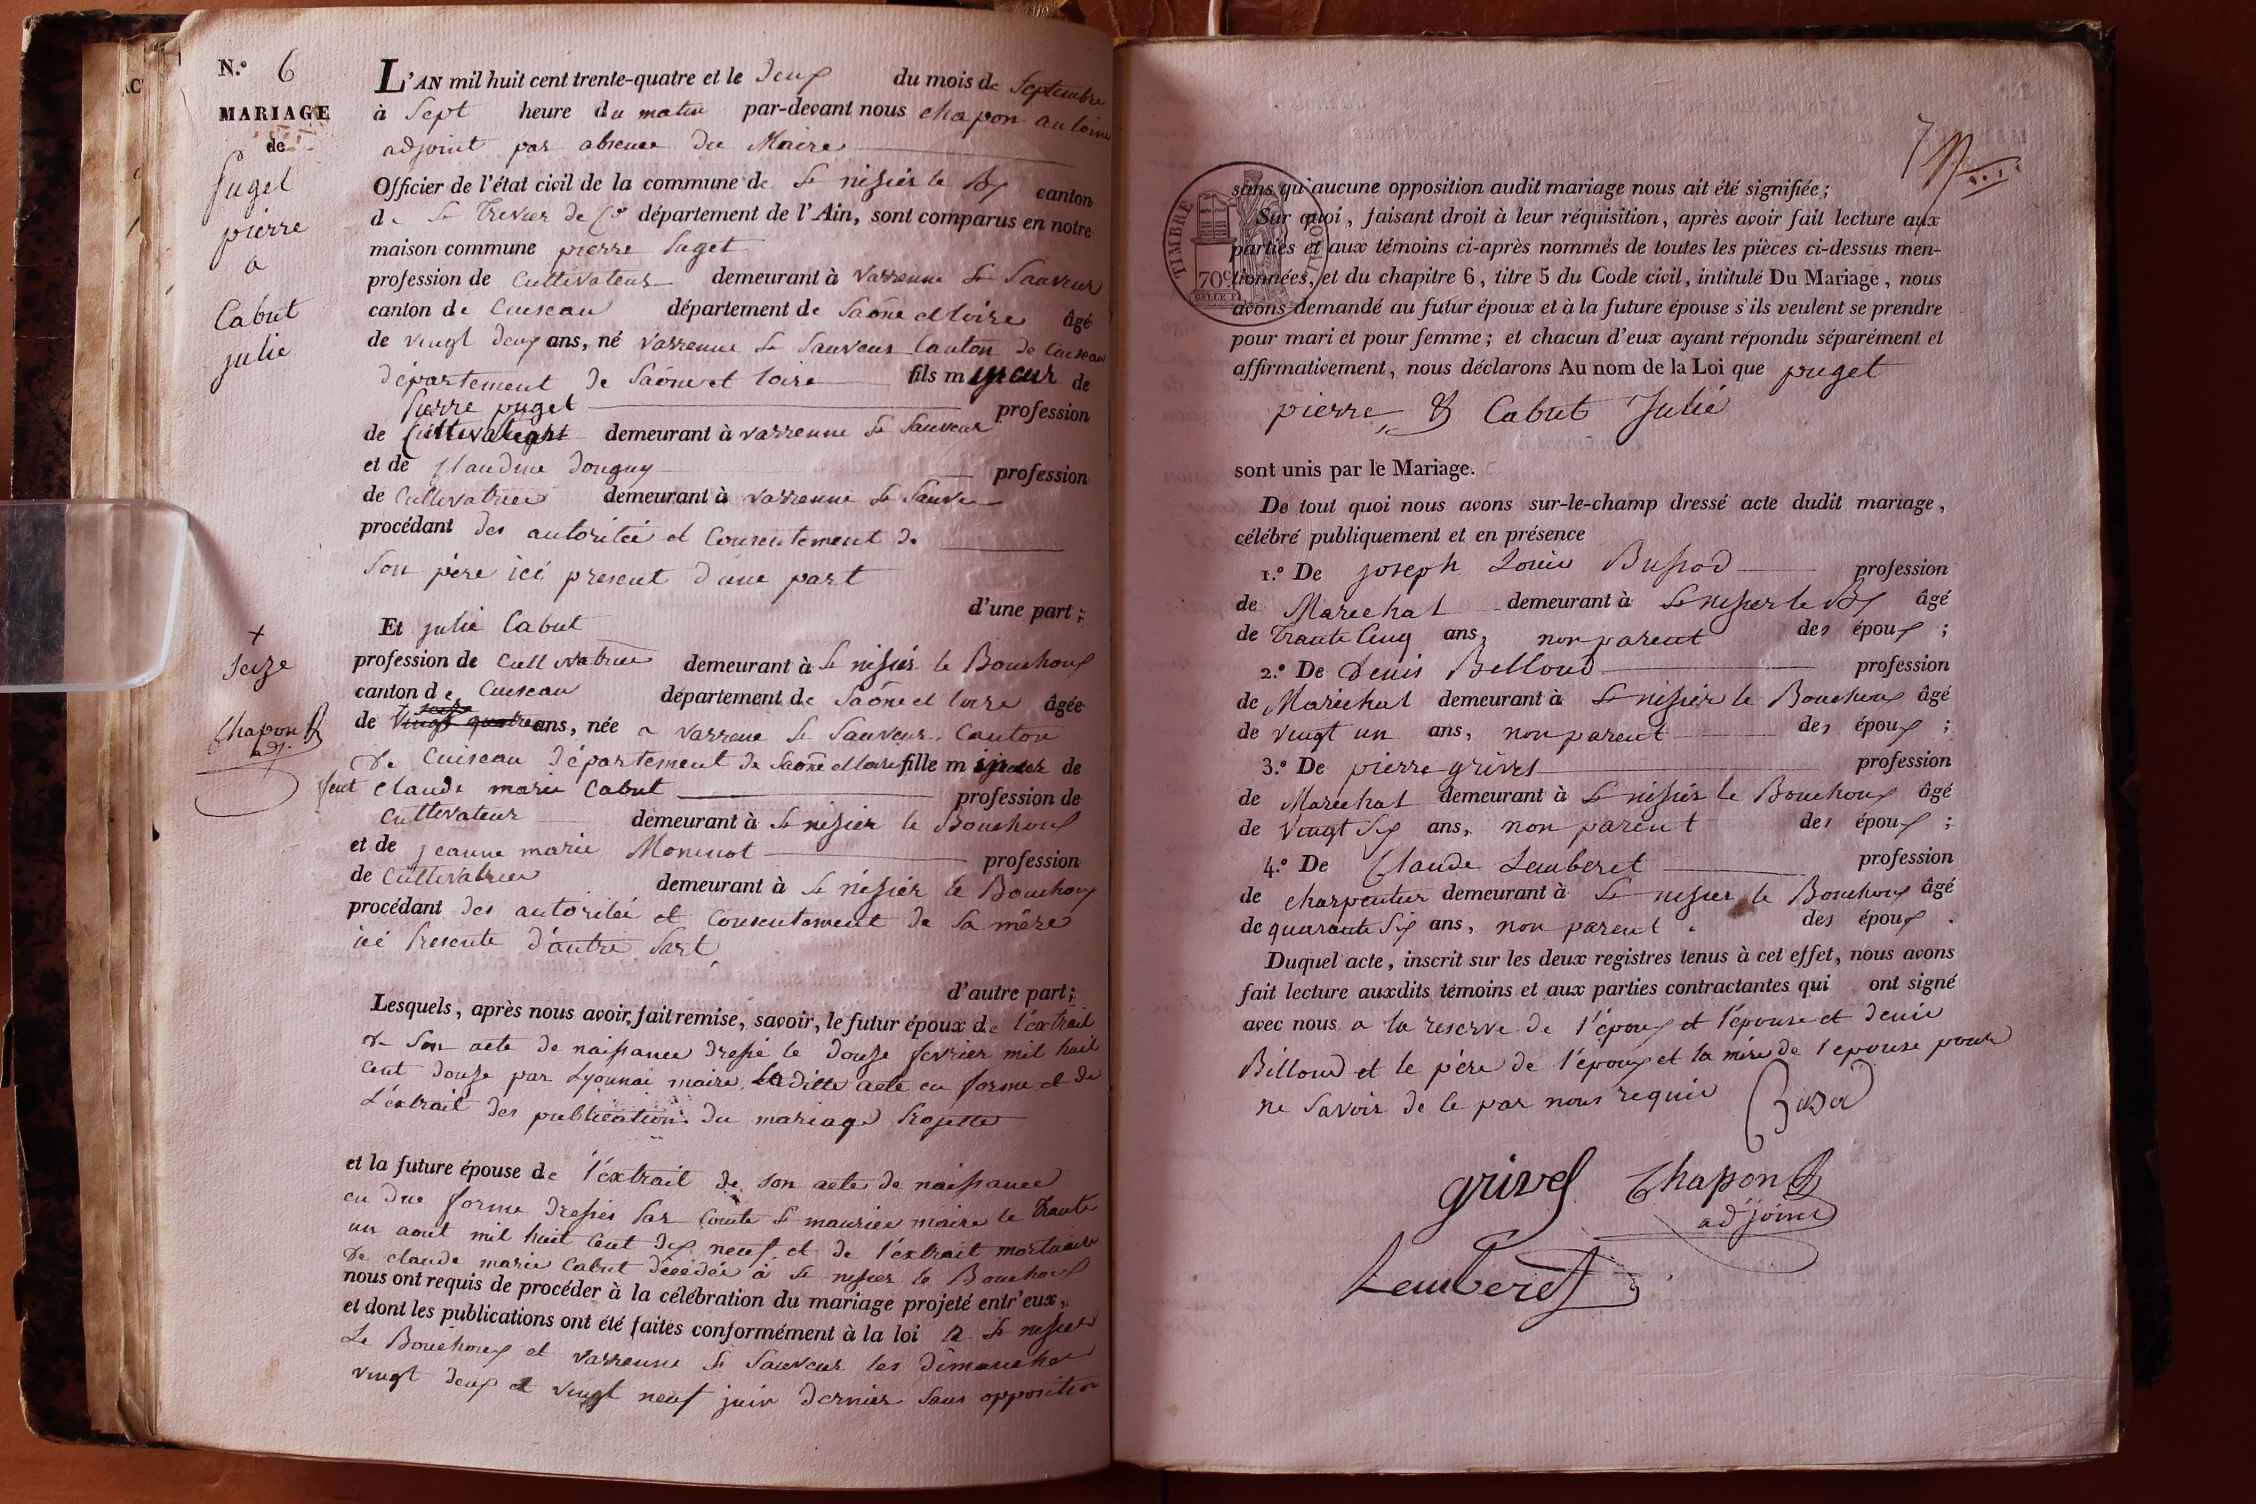 N.º 6
MARIAGE
de
puget
pierre
a
Cabut
julie
L'AN mil huit cent trente-quatre et le deux du mois de Septembre
à Sept heure du matin par-devant nous chapon antoine
adjoint par absence du Maire
Officier de l'état civil de la commune de St nisier le Bx canton
de St Trivier de Cs département de l'Ain, sont comparus en notre
maison commune pierre puget
profession de Cultivateur demeurant à varrenne St Sauveur
canton de Cuiseau département de Saône et loire âgé
de vingt deux ans, né varrenne St Sauveur Canton de Cuiseau
département de Saône et loire fils mineur de
pierre puget profession
de Cultivateur demeurant à varrenne St Sauveur
et de Claudine donguy profession
de Cultivatrice demeurant à varrenne St Sauveur
procédant des autoritéé et Consentement de
Son père ici present d'une part
d'une part;
Et julie Cabut
profession de Cultivatrice demeurant à St nisier le Bouchoux
canton de Cuiseau département de Saône et loire âgée
de seize vingt quatre ans, née a varrenne St Sauveur Canton
De Cuiseau Département de Saône et loire fille mineur de
feut claude marie Cabut profession de
Cultivateur demeurant à St nisier le Bouchoux
et de jeanne marie Moninot profession
de Cultivatrice demeurant à St nisier le Bouchoux
procédant des autoritéé et Consentement de Sa mère
ici presente d'autre part
d'autre part;
+
Seize
Chapon
adj.
Lesquels, après nous avoir fait remise, savoir, le futur époux de l'extrait
de Son acte de naissance dressé le douze fevrier mil huit
Cent douze par Lyonnai maire Ladite acte en forme et de
L'extrait des publications du mariage projetté
et la future épouse de l'extrait de son acte de naissance
en due forme dressés par Comte St maurice maire le trante
un aout mil huit Cent dix neuf et de l'extrait mortuaire
De claude marie Cabut décédé à St nisier le Bouchoux
nous ont requis de procéder à la célébration du mariage projeté entr'eux,
et dont les publications ont été faites conformément à la loi a St nisier
Le Bouchoux et varrenne St Sauveur les dimanches
vingt deux et vingt neuf juin dernier Sans opposition
TIMBRE ROYAL
70c.
sans qu'aucune opposition audit mariage nous ait été signifiée;
Sur quoi, faisant droit à leur réquisition, après avoir fait lecture aux
parties et aux témoins ci-après nommés de toutes les pièces ci-dessus men-
tionnées, et du chapitre 6, titre 5 du Code civil, intitulé Du Mariage, nous
avons demandé au futur époux et à la future épouse s'ils veulent se prendre
pour mari et pour femme; et chacun d'eux ayant répondu séparément et
affirmativement, nous déclarons Au nom de la Loi que puget
pierre & Cabut Julie
sont unis par le Mariage.
De tout quoi nous avons sur-le-champ dressé acte dudit mariage,
célébré publiquement et en présence
1.º De joseph Louis Bussod profession
de Marechal demeurant à St nisier le Bx âgé
de Trante Cinq ans, non parent des époux;
2.º De Denis Billoud profession
de Maréchal demeurant à St nisier le Bouchoux âgé
de vingt un ans, non parent des époux;
3.º De pierre grivel profession
de Marechal demeurant à St nisier le Bouchoux âgé
de vingt Six ans, non parent des époux;
4.º De Claude Lemberet profession
de charpentier demeurant à St nisier le Bouchoux âgé
de quarante Six ans, non parent des époux.
Duquel acte, inscrit sur les deux registres tenus à cet effet, nous avons
fait lecture auxdits témoins et aux parties contractantes qui ont signé
avec nous a la reserve de l'époux et l'épouse et denis
Billoud et le père de l'époux et la mère de l'epouse pour
ne Savoir de ce par nous requis
grivel Chapon
adjoint
Lemberet